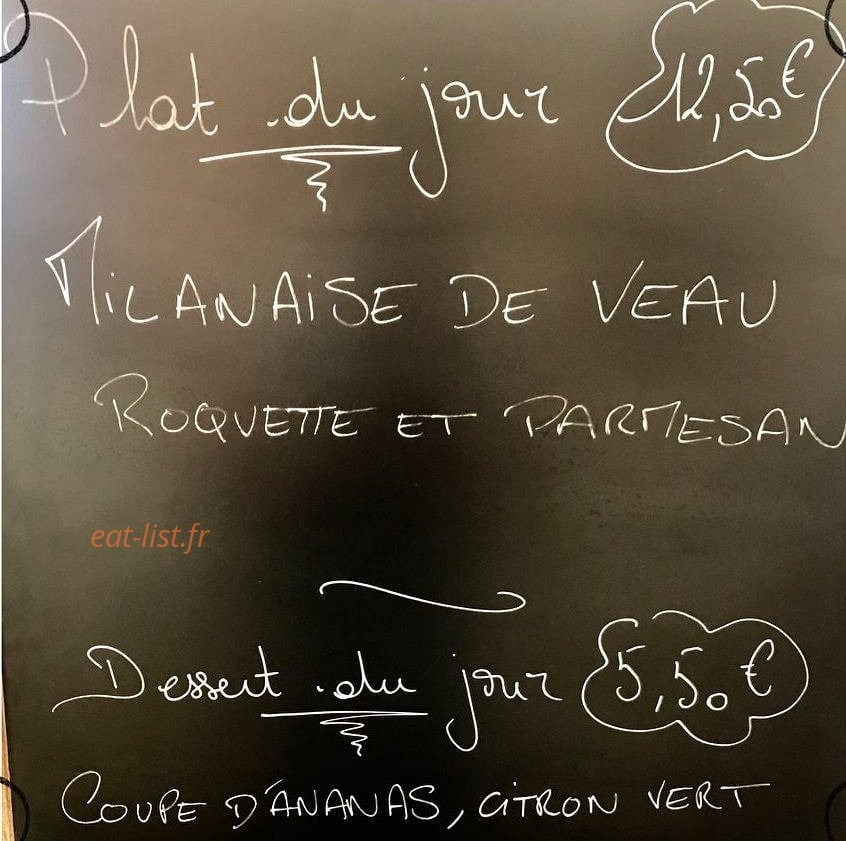 Plat du jour 12,50€
MiLANAiSE DE VEAU
ROQUETTE ET PARMESAN
eat-list.fr
Dessert du jour 5,50€
COUPE D'ANANAS, CiTRON VERT